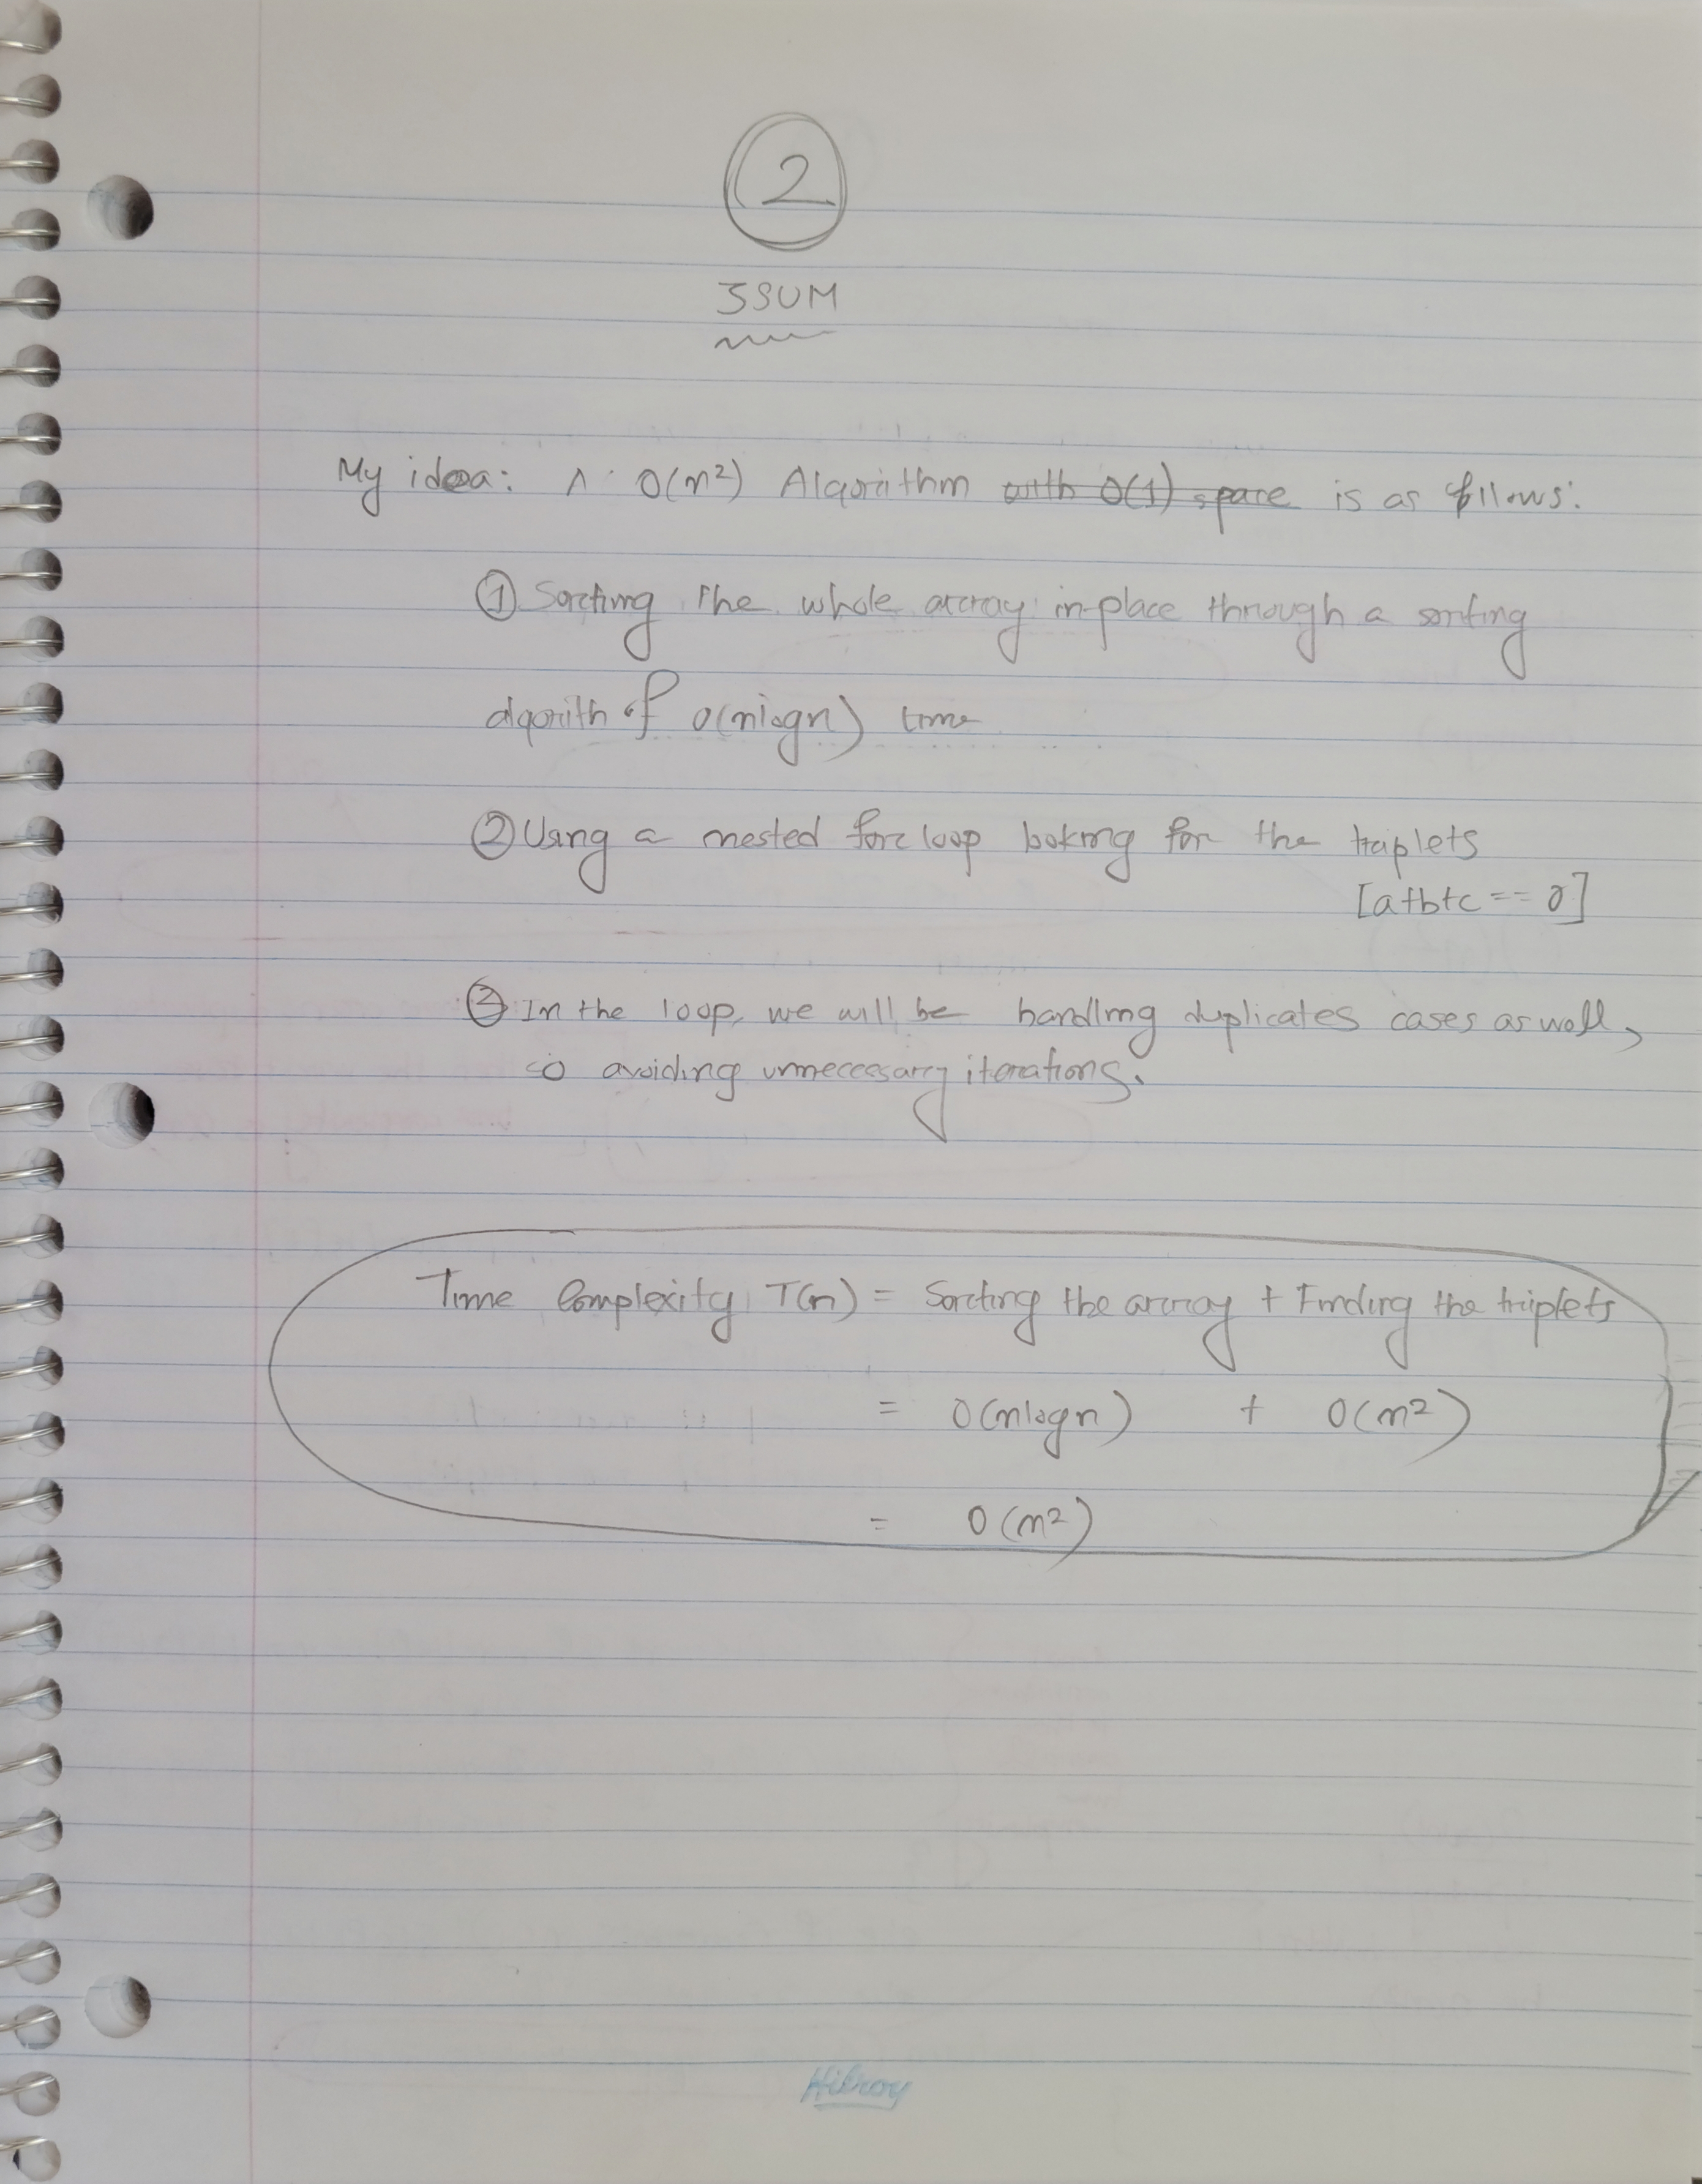 2
3SUM
My idea: A O(n²) Algorithm with O(1) space is as follows:
① Sorting the whole array in-place through a sorting
algorith of O(nlogn) time
② Using a nested for loop looking for the triplets
[a+b+c == 0]
③ In the loop, we will be handling duplicates cases as well,
so avoiding unnecessary iterations.
Time Complexity T(n) = Sorting the array + Finding the triplets
= O(nlogn) + O(n²)
= O(n²)
Hilroy